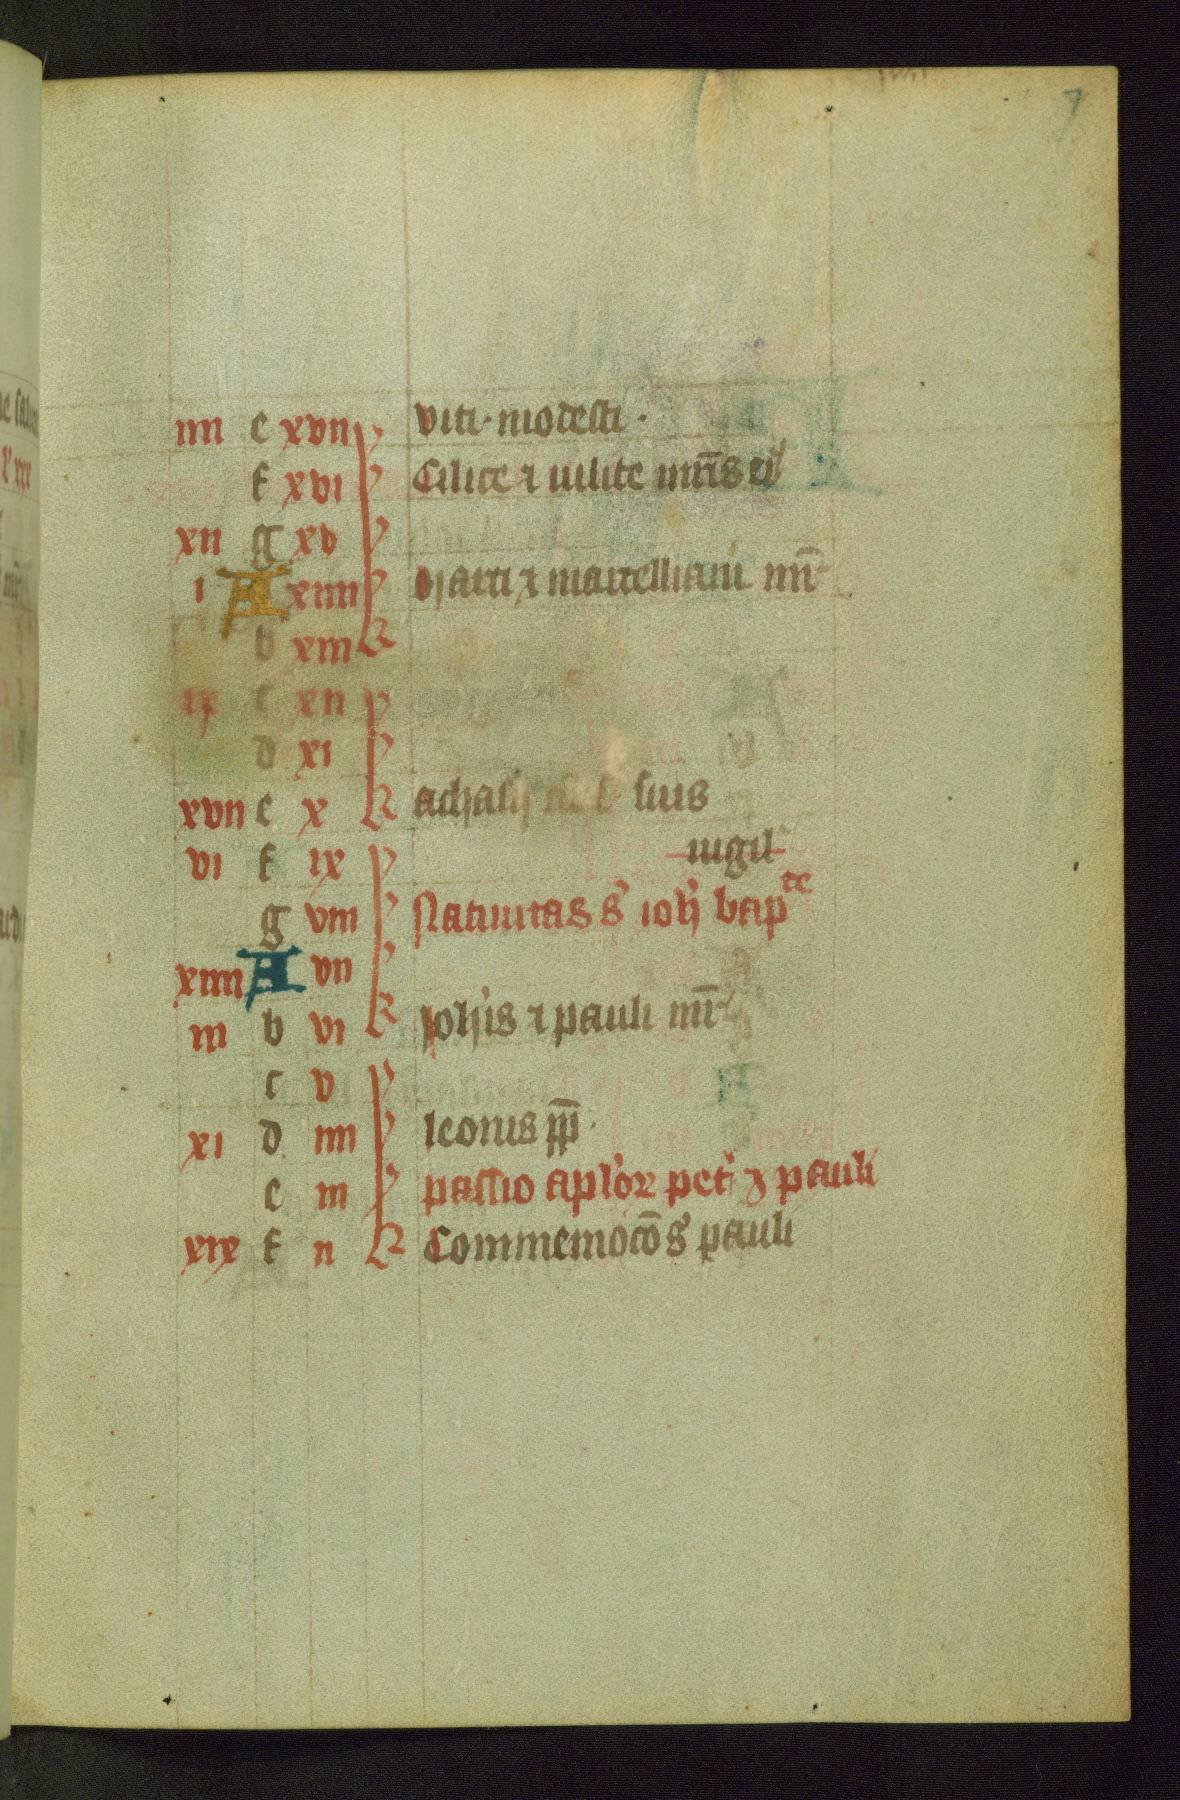 7
iiii e xvii viti · modesti ·
f xvi Cilice ⁊ iulite mr̄is ei
xii g xv
i A xiiii Marci ⁊ marcelliani mr̄
b xiii
ix c xii
d xi
xvii e x achasii suis
vi f ix uigil
g viii Natiuitas s ioh bap te
xiiii A vii
iii b vi Johīs ⁊ pauli mr̄
c v
xi d iiii leonis pp̄ ·
e iii passio aplor pet ⁊ pauli
xix f ii Commemocō s pauli